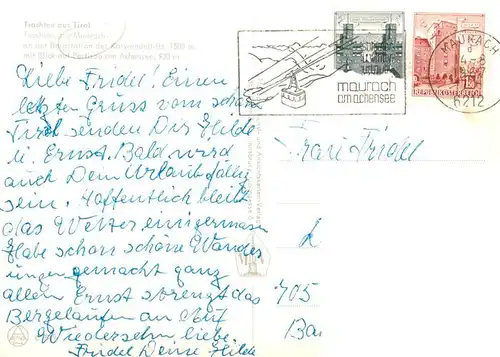 Trachten aus Tirol
Trachten aus Maurach
an der Bergstation der 1500 m,
mit Blick auf Pertisau am Achensee, 930 m
Liebe Fridel! Einen
letzten Gruss vom schön
Tirol senden Dir Hilde
u. Ernst. Bald wird
auch Dein Urlaub fällig
sein. Hoffentlich bleibt
das Wetter einigermass
Habe schon schöne Wander
ungen gemacht ganz
allein Ernst strengt das
Bergelaufen an Auf
Wiedersehn liebe
Fridel Deine Hilde
maurach
am achensee
REPUBLIK ÖSTERREICH
MAURACH
6212
Frau Fridel
705
Ba